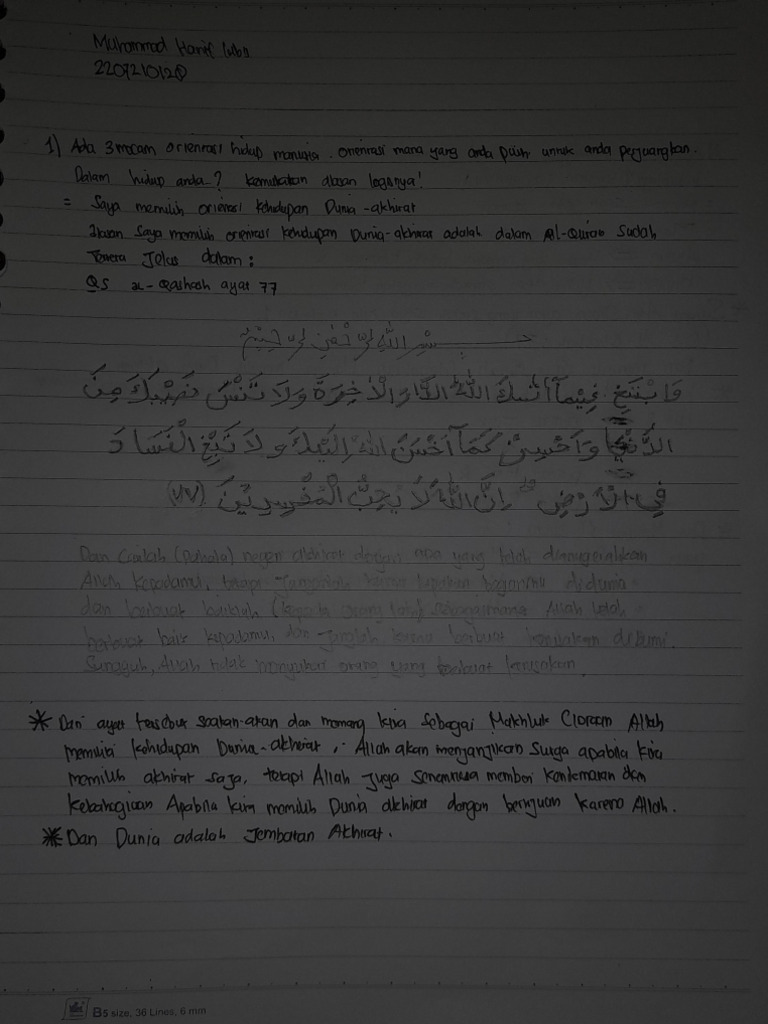 Muhammad Hanif Lubis
220721012
1) Ada 3 macam orientasi hidup manusia. orientasi mana yang anda pilih untuk anda perjuangkan.
Dalam hidup anda? kemukakan alasan logisnya!
= Saya memilih orientasi kehidupan Dunia-akhirat
Alasan Saya memilih orientasi kehidupan Dunia-akhirat adalah dalam Al-Qur'an Sudah
Tertera Jelas dalam:
QS al-Qashash ayat 77
بِسْمِ اللهِ الرَّحْمٰنِ الرَّحِيْمِ
وَابْتَغِ فِيْمَآ اٰتٰىكَ اللهُ الدَّارَ الْاٰخِرَةَ وَلَا تَنْسَ نَصِيْبَكَ مِنَ
الدُّنْيَا وَاَحْسِنْ كَمَآ اَحْسَنَ اللهُ اِلَيْكَ وَلَا تَبْغِ الْفَسَادَ
فِى الْاَرْضِ ۗ اِنَّ اللهَ لَا يُحِبُّ الْمُفْسِدِيْنَ (٧٧)
Dan Carilah (Pahala) negeri akhirat dengan apa yang telah dianugerahkan
Allah kepadamu, tetapi janganlah kamu lupakan bagianmu di dunia
dan berbuat baiklah (kepada orang lain) sebagaimana Allah telah
berbuat baik kepadamu, dan janglah kamu berbuat kerusakan di bumi.
Sungguh, Allah tidak menyukai orang yang berbuat kerusakan
* Dari ayat tersebut seakan-akan dan memang kita sebagai Makhluk Ciptaan Allah
memilih kehidupan Dunia-akhirat, Allah akan menjanjikan Surga apabila kita
memilih akhirat saja, tetapi Allah juga senantiasa memberi kenikmatan dan
kebahagiaan Apabila kita memilih Dunia akhirat dengan bertujuan karena Allah.
* Dan Dunia adalah Jembatan Akhirat.
B5 size, 36 Lines, 6 mm